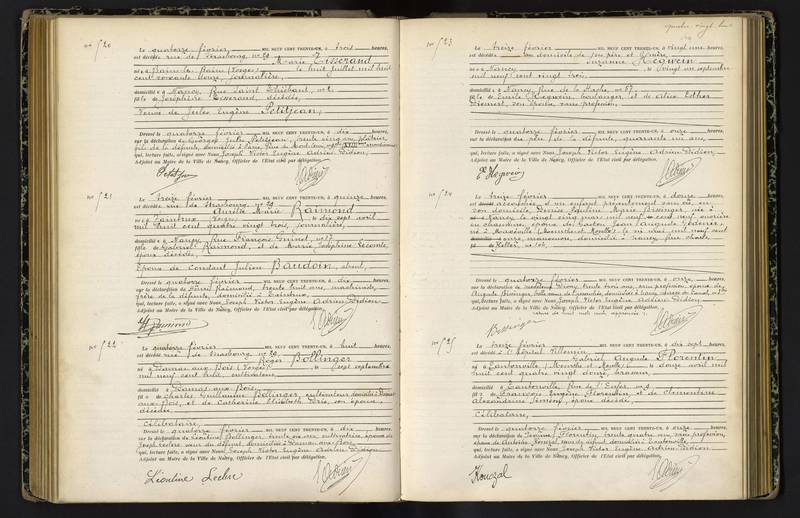 N° 520
Le quatorze février MIL NEUF CENT TRENTE-UN, à trois heures,
est décédée rue de Strasbourg n° 29
Marie Tisserand
née à (Vosges) le huit juillet mil huit
cent soixante douze, journalière,
domiciliée à Nancy, Rue Saint Thiébaut, n°
fille de Joséphine Tisserand, décédée,
Veuve de Jules Eugène Petitjean,
Dressé le quatorze février à dix heures,
sur la déclaration de Georges Jules Petitjean, trente cinq ans, plâtrier,
fils de la défunte, domicilié à Paris, Rue de
qui, lecture faite, a signé avec Nous Joseph Victor Eugène Adrien Didion,
Adjoint au Maire de la Ville de Nancy, Officier de l'Etat civil par délégation.
N° 521
Le treize février MIL NEUF CENT TRENTE-UN, à quinze heures,
est décédée rue de Strasbourg n° 29
Amélie Marie Raimond
née à Vosges, le dix sept avril
mil huit cent quatre vingt trois, journalière,
domiciliée à Nancy, Rue François Guinet, n° 27
fille de Gabriel Raimond, et de Marie Joséphine
époux décédés,
Epouse de Constant Julien Baudoin,
Dressé le quatorze février à dix heures,
sur la déclaration de Henri Raimond, trente huit ans, machiniste,
frère de la défunte, domicilié à
qui, lecture faite, a signé avec Nous Joseph Victor Eugène Adrien Didion
Adjoint au Maire de la Ville de Nancy, Officier de l'Etat civil par délégation.
N° 522
Le quatorze février MIL NEUF CENT TRENTE-UN, à huit heures,
est décédé rue de Strasbourg n° 29
Roger Bollinger
né à Damas aux Bois (Vosges) le sept septembre
mil neuf cent huit, cultivateur,
domicilié à Damas aux Bois,
fils de Charles Guillaume Bollinger, cultivateur, domicilié à Damas
aux Bois, et de Catherine Elisabeth son épouse,
décédée,
Célibataire,
Dressé le quatorze février à dix heures,
sur la déclaration de Léontine Bollinger, trente ans, cultivatrice, épouse de
Joseph Leclerc, sœur du défunt, domiciliée à Damas aux Bois,
qui, lecture faite, a signé avec Nous Joseph Victor Eugène Adrien Didion
Adjoint au Maire de la Ville de Nancy, Officier de l'Etat civil par délégation.
Léontine Leclerc
quatre vingt huit
N° 523
Le treize février MIL NEUF CENT TRENTE-UN, à vingt une heures,
est décédée au domicile de son père et mère,
Suzanne Hegwein
née à Nancy le vingt un septembre
mil neuf cent vingt trois,
domiciliée à Nancy, Rue de la Hache, n° 67
fille de Emile Hegwein, boulanger, et de
son épouse, sans profession,
Dressé le quatorze février à onze heures,
sur la déclaration du père de la défunte, quarante un ans,
qui, lecture faite, a signé avec Nous Joseph Victor Eugène Adrien Didion,
Adjoint au Maire de la Ville de Nancy, Officier de l'Etat civil par délégation.
E. Hegwein
N° 524
Le treize février MIL NEUF CENT TRENTE-UN, à douze heures,
est accouchée d'un enfant présentement sans vie, en
son domicile, Denise née à
Nancy le vingt cinq mars mil neuf cent neuf, ouvrière
en chaussures, épouse de
né à Maxéville (Meurthe et Moselle) le
manœuvre, domicilié à Nancy, rue Charles
Keller, n° 106,
Dressé le quatorze février à onze heures,
sur la déclaration de trente trois ans, sans profession, épouse de
qui, lecture faite, a signé avec Nous Joseph Victor Eugène Adrien Didion
Adjoint au Maire de la Ville de Nancy, Officier de l'Etat civil par délégation.
N° 525
Le treize février MIL NEUF CENT TRENTE-UN, à dix sept heures,
est décédé à l'hôpital Villemin
Gabriel Auguste Florentin
né à Tantonville (Meurthe et Moselle) le douze avril mil
huit cent quatre vingt douze, brasseur,
domicilié à Tantonville, Rue de l'Enfer, n° 9
fils de François Eugène Florentin, et de Clémentine
Alexandrine époux décédés,
Célibataire,
Dressé le quatorze février à onze heures,
sur la déclaration de Florentin, trente quatre ans, sans profession,
épouse de sœur du défunt, domiciliée à Tantonville,
qui, lecture faite, a signé avec Nous Joseph Victor Eugène Adrien Didion
Adjoint au Maire de la Ville de Nancy, Officier de l'Etat civil par délégation.